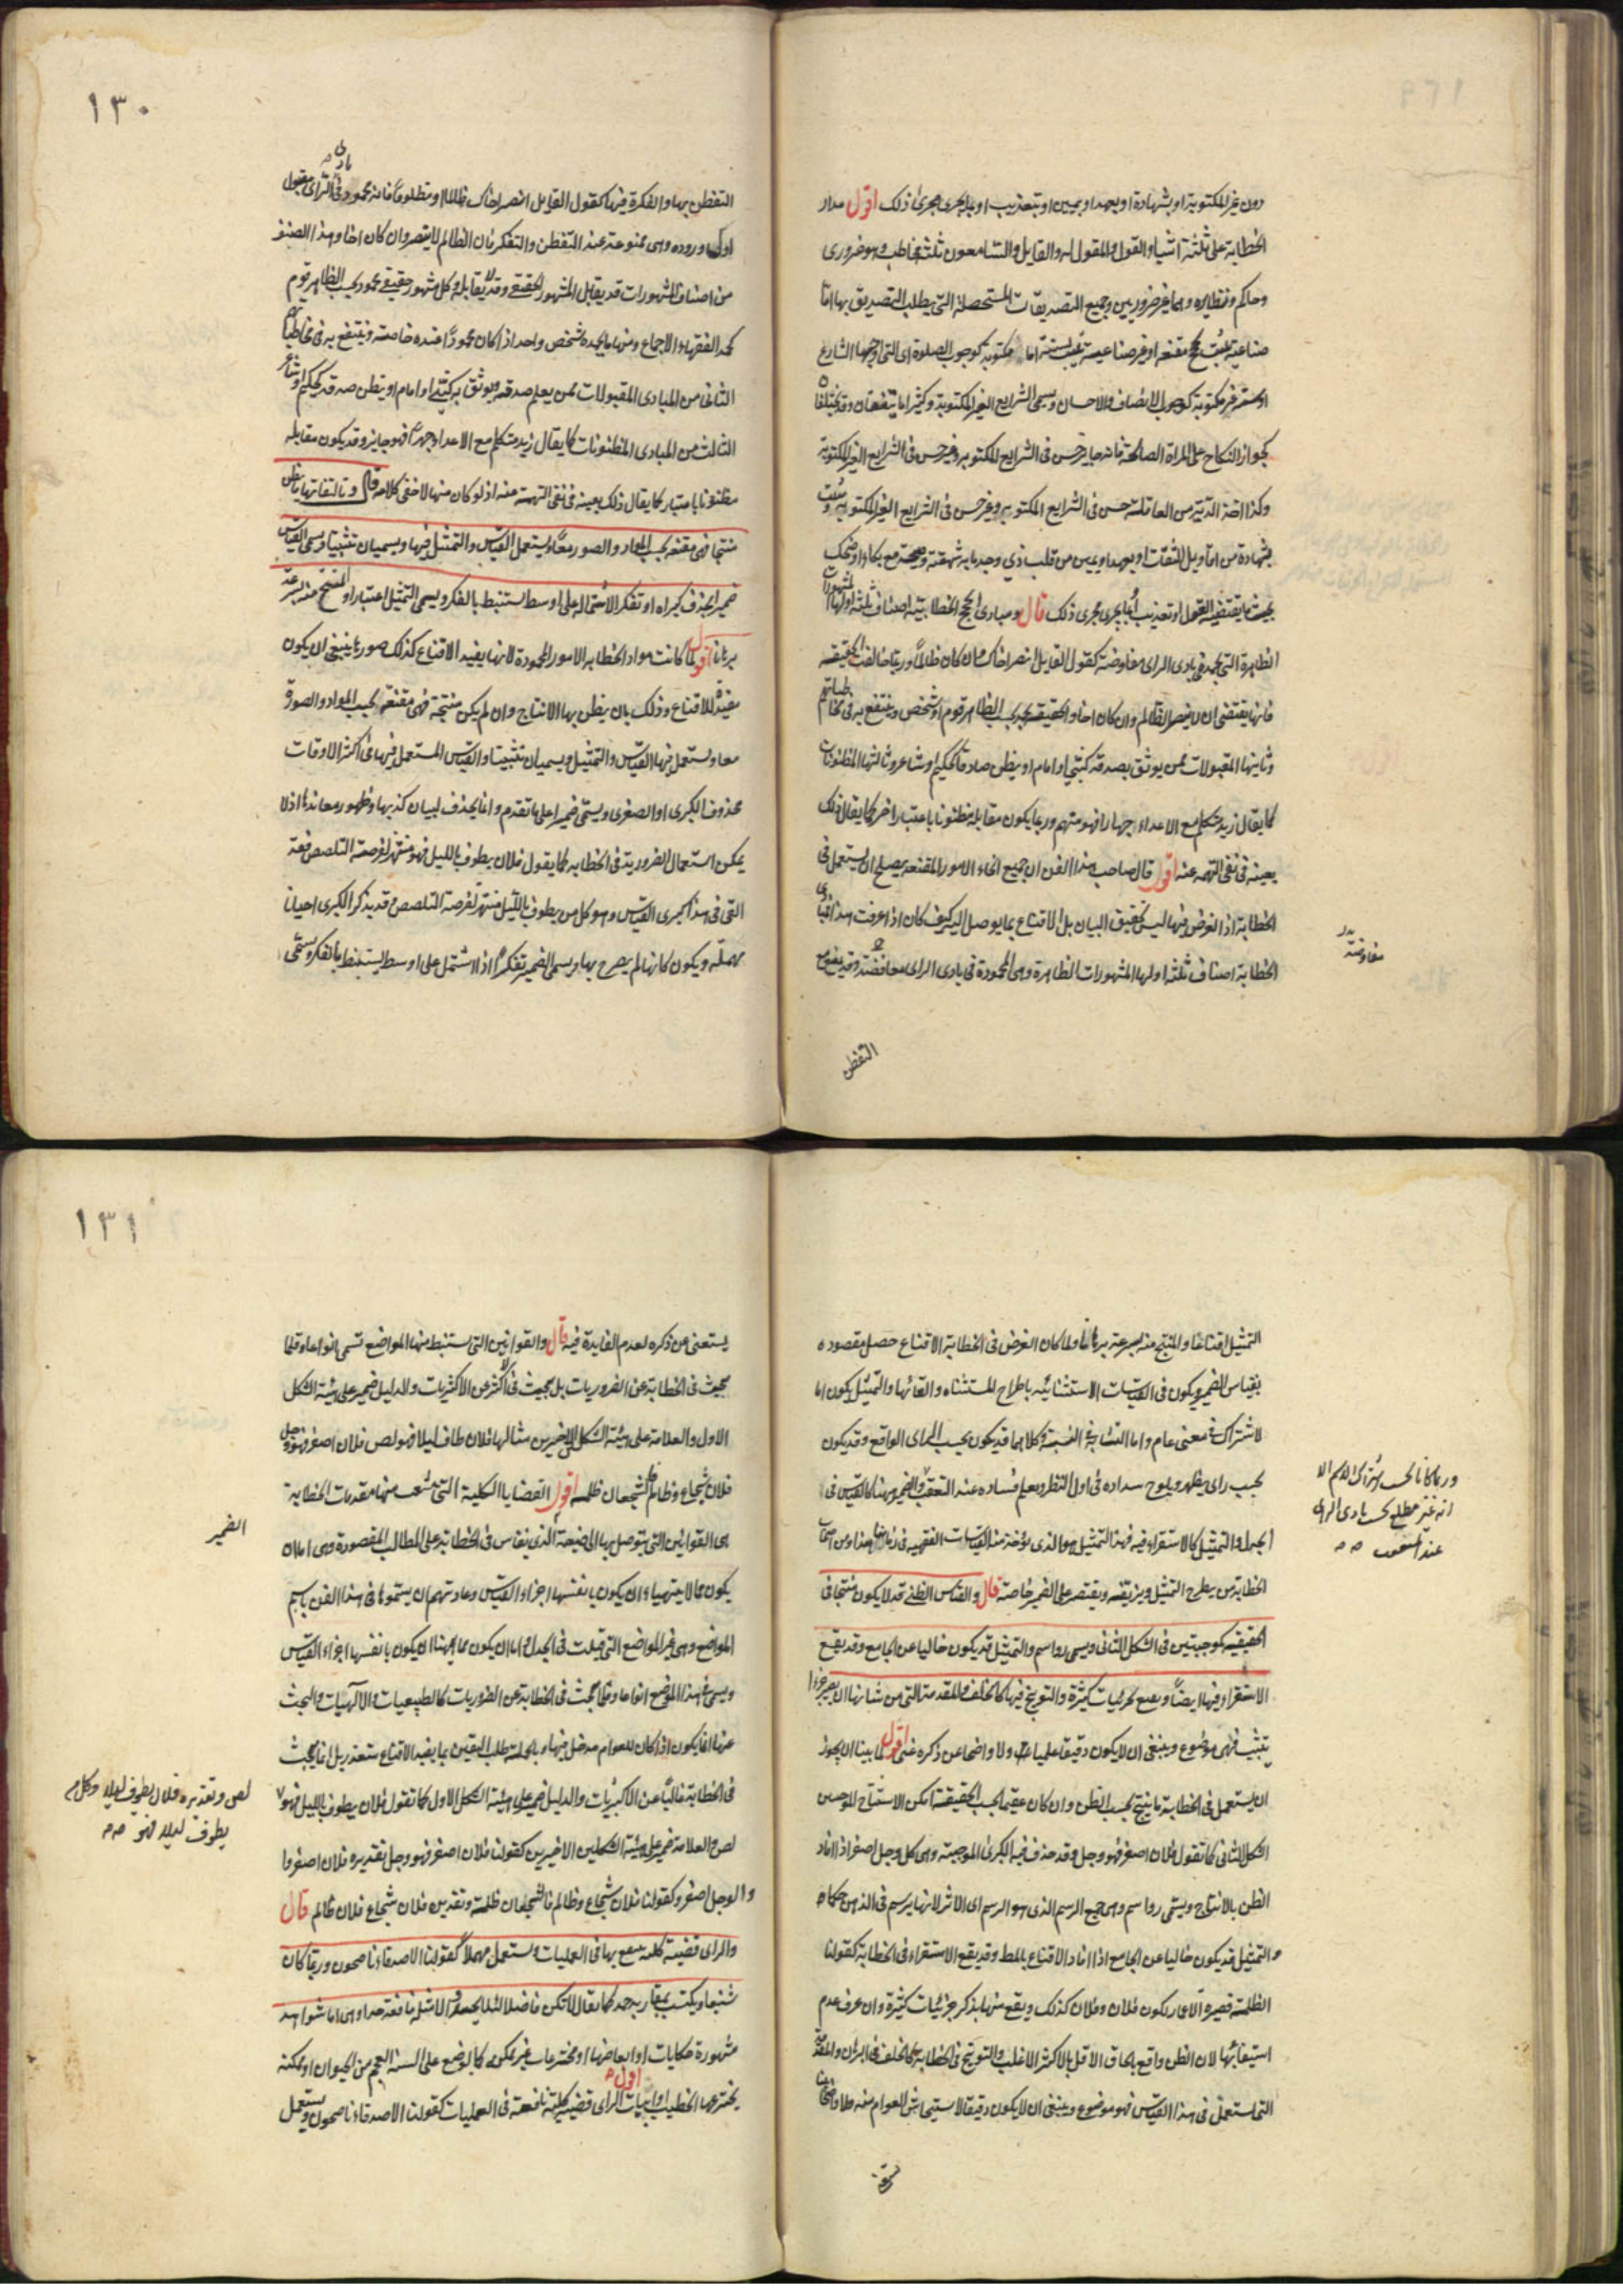 دون غير المكتوبة او بشهادة او بعهد او بيمين او بتعذيب او بما يجرى مجرى ذلك اقول مدار
الخطابة على ثلثة اشياء القول والمقول له والقايل والسامعون ثلثة مخاطب وهو ضرورى
وحاكم ونظاره وهما غير ضروريين وجميع التصديقات المستحصلة التى يطلب التصديق بها اما
صناعية مقنعه او غير صناعية اما مكتوبة كوجوب الصلوة اى التى اوجبها الشارع
او غير مكتوبة كوجوب الانصاف والاحسان ويسمى الشرايع الغير المكتوبة وكثيرا ما يتفقان وقد يختلفا
كجواز النكاح على المراة الصالحة فانه جايز حسن فى الشرايع المكتوبه وغير حسن فى الشرايع الغير المكتوبة
وكذا اخذ الدية من العاقلة حسن فى الشرايع المكتوبه وغير حسن فى الشرايع الغير المكتوبة
بشهادة من اقاويل الثقات او بعهد او بيمين من قلب ذي وجد مع بكاء او ضحك
بحيث ما يقتضيه القول او تعذيب او ما يجرى مجرى ذلك قال ومبادى الحجج الخطابية اصناف ثلثة اولها المشهورات
الظاهرة التى تحمد فى بادى الراى مفاوضة كقول القايل انصر اخاك وان كان ظالما وربما خالفت الحقيقيه
فانها يقتضى ان لا ينصر الظالم وان كان اخا والحقيقية بحسب الظاهر قوم او شخص وينتفع به فى مخاطباتهم
وثانيها المقبولات ممن يوثق بصدقه كنبى او امام او يظن صادقا كحكيم او شاعر وثالثها المظنونات
كما يقال زيد متكلم مع الاعداء جهارا فهو متهم وربما يكون مقابله مظنونا باعتبار اخر كما يقال ذلك
بعينه فى نفى التهمه عنه اقول قال صاحب هذا الفن ان جميع انحاء الامور المقنعه يصلح ان يستعمل فى
الخطابة اذ الغرض فيها ليس تحقيق البيان بل الاقناع بما يوصل اليه كيف كان اذا عرفت هذا فمبادى
الخطابة اصناف ثلثه اولها المشهورات الظاهرة وهى المحمودة فى بادى الراى
مفاوضته
التفطن
١٣٠
التفطن بها والفكرة فيها كقول القايل انصر اخاك ظالما او مظلوما فانه محمود فى بادى الراى مقبول
اول وروده وهى ممنوعة عند التفطن والتفكر بان الظالم لا ينصر وان كان اخا وهذا الصنف
من اصناف المشهورات قد يقابل المشهور الحقيقى وقد لا يقابله وكل مشهور حقيقى محمود بحسب الظاهر قوم
كحمد الفقهاء الاجماع ومنها ما يحمده شخص واحد اذا كان محمودا عنده خاصة وينتفع به فى مخاطباتهم
الثانى من المبادى المقبولات ممن يعلم صدقه ويوثق به كنبى او امام او يظن صدقه كحكيم او شاعر
الثالث من المبادى المظنونات كما يقال زيد متكلم مع الاعداء جهرا فهو جايز وقد يكون مقابله
مظنونا باعتبار كما يقال ذلك بعينه فى نفى التهمة عنه اذ لو كان منها لاخفى كلامه قال وتاليفاتها ما يظن
منتجا فهى مقنعه بحسب المواد والصور معا ويستعمل القياس والتمثيل فيها ويسميان تثبيتا ويسمى القياس
ضميرا بحذف كبراه او تفكر الاشتماله على اوسط يستنبط بالفكر ويسمى التمثيل اعتبارا والمنتج منه بسرعة
برهانا اقول لما كانت مواد الخطابه الامور المحمودة لانها يفيد الاقناع كذلك صورها ينبغى ان يكون
مفيدة للاقناع وذلك بان يظن بها الانتاج وان لم يكن منتجة فهى مقنعه بحسب المواد والصورة
معا ويستعمل فيها القياس والتمثيل ويسميان تثبيتا والقياس المستعمل فيها فى اكثر الاوقات
محذوف الكبرى او الصغرى ويسمى ضميرا على ما تقدم وانما يحذف لبيان كذبها وظهور معاندها اذ لا
يمكن استعمال الضرورية فى الخطابه كما يقول فلان يطوف بالليل فهو منتهز لفرصة التلصص
التى فى هذا كبرى القياس وهو كل من يطوف بالليل منتهز لفرصة التلصص وقد يذكر الكبرى احيانا
مهملة ويكون كانها لم يصرح بها ويسمى الضمير تفكرا اذا اشتمل على اوسط يستنبط بالفكر ويسمى
التمثيل اقناعا والمنتج منه بسرعة برهانا ولما كان الغرض فى الخطابة الاقناع حصل مقصوده
بقياس الضمير ويكون فى القياسات الاستثنائيه باطراح المستثناه والقائها والتمثيل يكون اما
لاشتراك فى معنى عام واما لتشابه فى النسبة وكلاهما قد يكون بحسب الراى الواقع وقد يكون
بحسب راى يظهر ويلوح سداده فى اول النظر ويعلم فساده عند التعقب والضمير ههنا كالقياس فى
الجدل والتمثيل كالاستقراء فيه فهذا التمثيل هو الذى يؤخذ منه القياسات الفقهيه فى زماننا هذا ومن اصحاب
الخطابة من يطرح التمثيل ويزيفه ويقتصر على الضمير خاصة قال والقياس الظنى قد لا يكون منتجا فى
الحقيقيه كموجبتين فى الشكل الثانى ويسمى رواسم والتمثيل قد يكون خاليا عن الجامع وقد يقع
الاستقراء فيها ايضا ويقع بجزئيات كثيرة والتوبيخ فيها كالخلف والمقدمة التى من شانها ان يصير جزءا
تثبيت فهى موضوع وينبغى ان لا يكون دقيقا علميا ولا واضحا عن ذكره غنى اقول لما بينا ان يجوز
ان يستعمل فى الخطابة ما ينتج بحسب الظن وان كان عقيما بحسب الحقيقة امكن الاستنتاج لموجبتين
الشكل الثانى كما تقول فلان اصفر فهو وجل وقد حذف فيه الكبرى الموجبة وهى كل وجل اصفر اذا افاد
الظن بالانتاج ويسمى رواسم وهى جمع الرسم الذى هو الرسم اى الاثر لانها يرسم فى الذهن حكما
والتمثيل قد يكون خاليا عن الجامع اذا افاد الاقناع بالمط وقد يقع الاستقراء فى الخطابة كقولنا
الظلمة قصيرة الاعمار لكون فلان وفلان كذلك ويقع منها بذكر جزئيات كثيرة وان عرف عدم
استيفائها لان الظن واقع بالحاق الاقل بالاكثر الاغلب والتوبيخ فى الخطابة كالخلف فى البرهان والمقدمة
التى تستعمل فى هذا القياس فهو موضوع وينبغى ان لا يكون دقيقا لاستيحاش العوام منه
ورما كانا بحسب اشتراك الاسم الا
انه غير مطلع بحسب بادى الراى
عند التعقب
١٣١
يستغنى عن ذكره لعدم الفايدة فيه قال والقوانين التى يستنبط منها المواضع تسمى انواعا وقلما
يبحث فى الخطابة عن الضروريات بل يبحث فى الاكثر عن الاكثريات والدليل ضمير على هيئة الشكل
الاول والعلامة على هيئة الشكل الاخيرين مثالها فلان طاف ليلا فهو لص فلان اصفر فهو وجل
فلان شجاع وظالم فالشجعان ظلمه اقول القضايا الكلية التى يتشعب منها مقدمات الخطابية
هى القوانين التى يتوصل بها الى صنعة الذى يقاس فى الخطابة على المطالب المقصودة وهى اما ان
يكون مما لا يتهيا ان يكون بانفسها اجزاء القياس وعادتهم ان يسموها فى هذا الفن باسم
المواضع وهى غير المواضع التى قيلت فى الجدل واما ان يكون مما يهيئنا ان يكون بانفسها اجزاء القياس
ويسمى فى هذا الموضع انواعا وقلما يبحث فى الخطابة عن الضروريات كالطبيعيات والالهيات والبحث
عنها انما يكون اذا كان للعوام مدخل فيها وبالجملة طلب اليقين بما يفيد الاقناع متعذر بل انما يبحث
فى الخطابة غالبا عن الاكثريات والدليل ضمير على هيئة الشكل الاول كما تقول فلان يطوف بالليل فهو
لص والعلامة ضمير على هيئة الشكلين الاخيرين كقولنا فلان اصفر فهو وجل تقديره فلان اصفر
والوجل اصفر وكقولنا فلان شجاع وظالم فالشجعان ظلمة وتقديره فلان شجاع فلان ظالم قال
والراى قضية كلية ينتفع بها فى العمليات ويستعمل مهملا كقولنا الاصدقاء ناصحون وربما كان
شنيعا ويكتب بمقارنة حمد كما يقال لا تكن فاضلا لئلا تحسد والامثلة نافعة جدا وهى اما شواهد
مشهورة حكايات او ابعاضها او مخترعات غير ممكنة كما يوضع على السنة العجم من الحيوان او ممكنه
يخترعها الخطيب اقول الراى قضية كلية نافعة فى العمليات كقولنا الاصدقاء ناصحون ويستعمل
الضمير
لص وتقديره فلان يطوف ليلا وكل
يطوف ليلا فهو